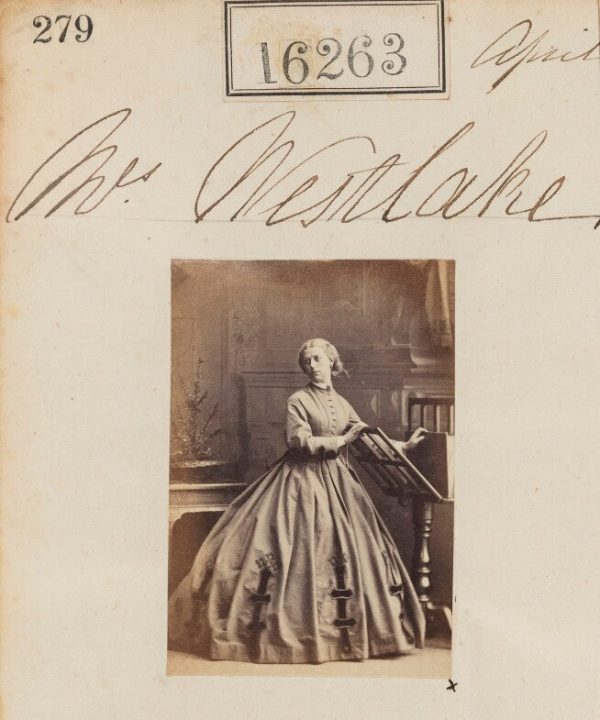 279
16263
April
Mrs. Westlake,
x